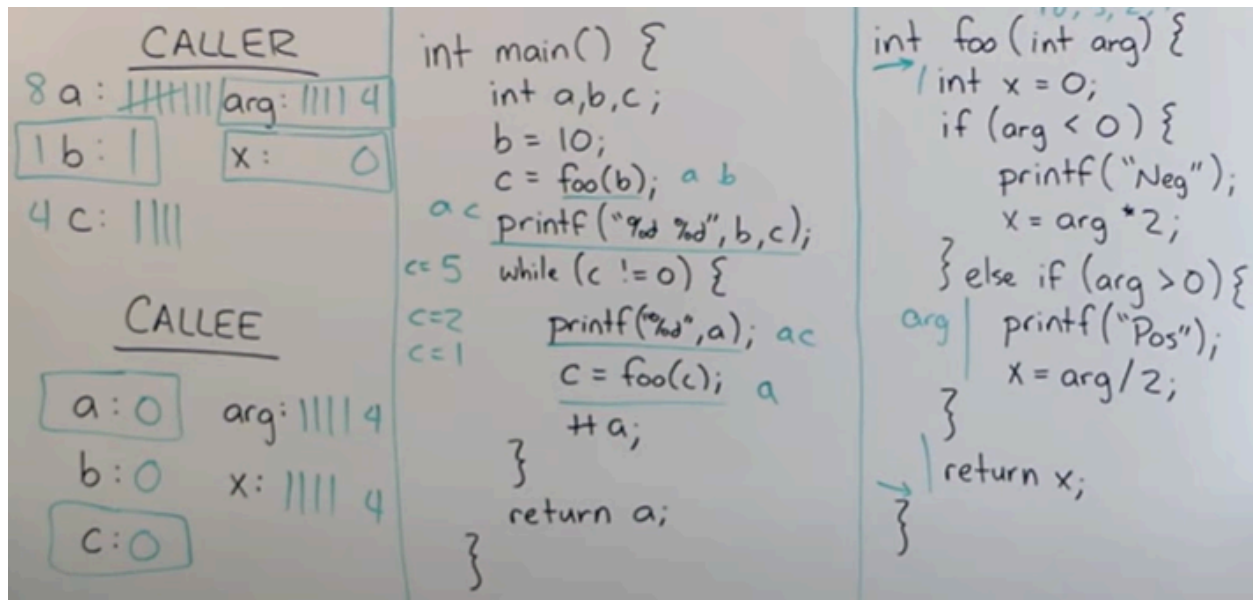 CALLER
8 a: |||||||| arg: |||| 4
1 b: | x: 0
4 c: ||||
CALLEE
a: 0 arg: |||| 4
b: 0 x: |||| 4
c: 0
int main() {
int a,b,c;
b = 10;
c = foo(b); a b
a c printf("%d %d",b,c);
c= 5 while (c != 0) {
c=2 printf("%d",a); ac
c=1 c = foo(c); a
++a;
}
return a;
}
int foo(int arg) {
int x = 0;
if (arg < 0) {
printf("Neg");
x = arg *2;
} else if (arg > 0) {
arg printf("Pos");
x = arg/2;
}
return x;
}